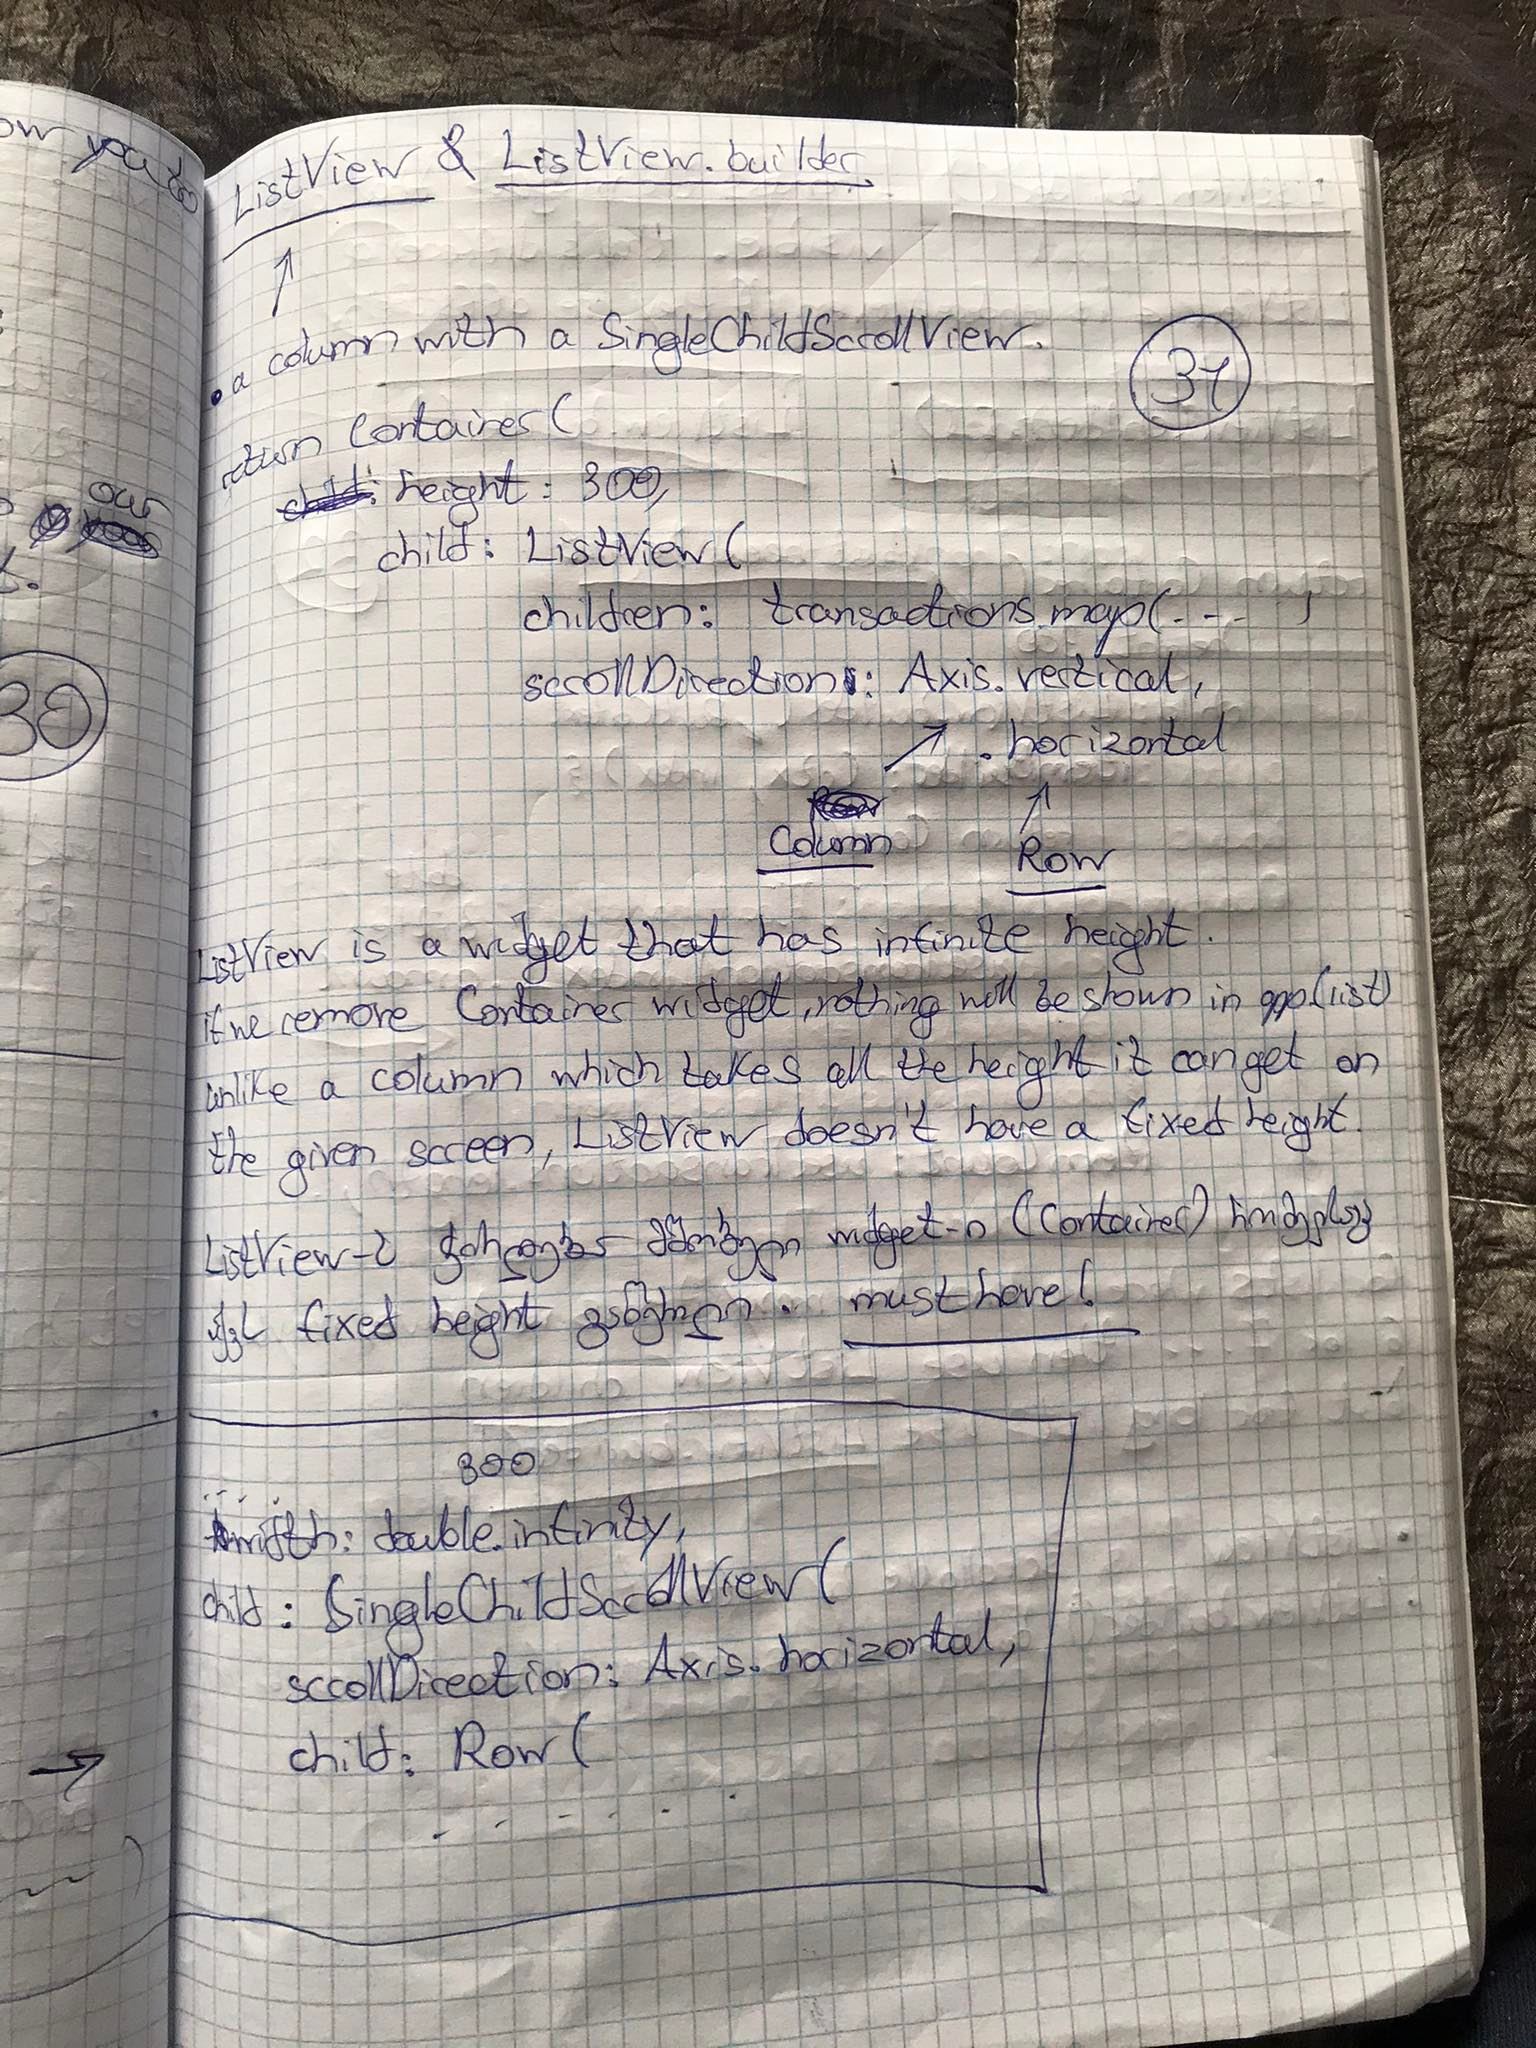 ow you to
ListView & ListView.builder.
• a column with a SingleChildScrollView.
31
return Container(
height: 300,
our
child: ListView(
children: transactions.map(- - -
scrollDirection: Axis.vertical,
. horizontal
30
Column
Row
ListView is a widget that has infinite height.
if we remove Container widget, nothing will be shown in app.(list)
unlike a column which takes all the height it can get on
the given screen, ListView doesn't have a fixed height.
ListView-ը widget-ը (Container)
fixed height must have!
300
width: double.infinity,
child: SingleChildScrollView(
scrollDirection: Axis.horizontal,
child: Row(
- - - - - -